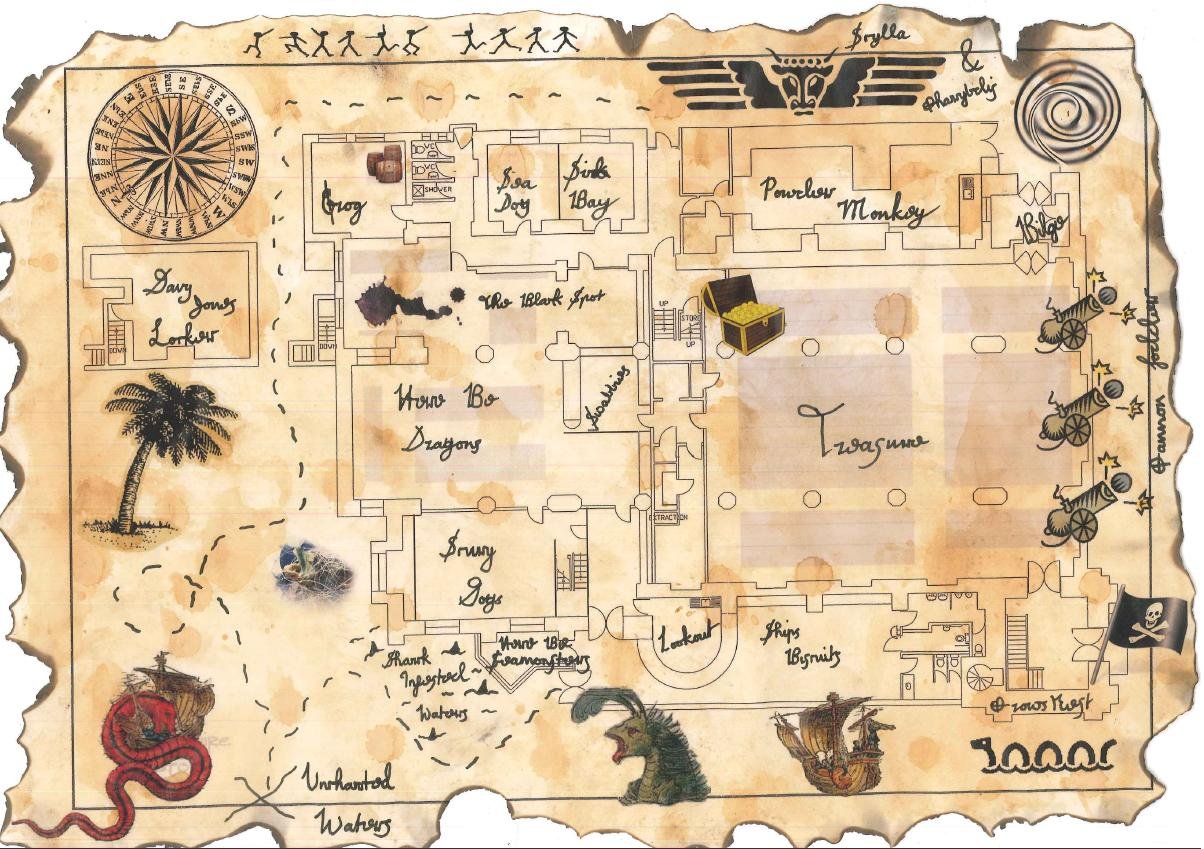 Scylla
&
Charybdis
WC
WC
SHOWER
Grog
Sea
Dog
Sick
Bay
Powder
Monkey
Bilge
Davy
Jones
Locker
DOWN
DOWN
The Black Spot
UP
STORE
UP
Cannon fodder
Here Be
Dragons
Scabbies
Treasure
EXTRACTION
Scurvy
Dogs
Lookout
Ships
Biscuits
Here Be
Seamonsters
Shark
Infested
Waters
Crows Nest
Uncharted
Waters